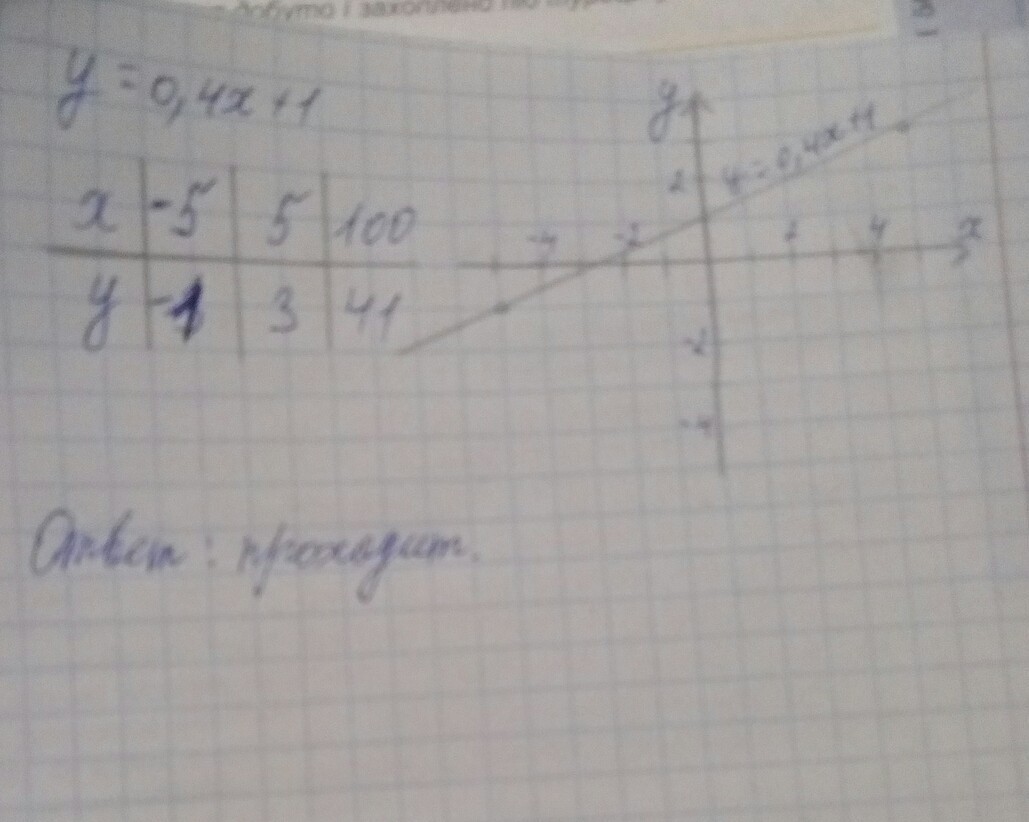 добуто і захоплено
y = 0,4x + 1
x -5 5 100
y -1 3 41
y
y = 0,4x+1
2
-4 -2 2 4 x
-2
-4
Ответ: проходит.